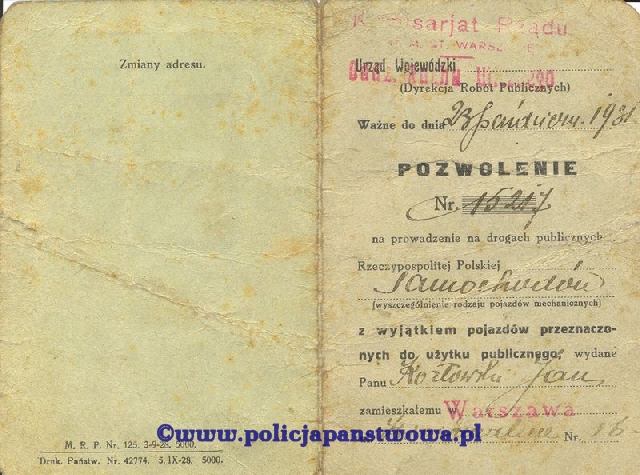 Zmiany adresu.
M. R. P. Nr. 125. 3-9-28. 5000.
Druk. Państw. Nr. 42774. 5. IX-28. 5000.
Komisarjat Rządu
M. ST. WARSZ
Urząd Wojewódzki
Oddz. Ruchu
(Dyrekcja Robót Publicznych)
Ważne do dnia 23 październ. 1931
POZWOLENIE
Nr. 15217
na prowadzenie na drogach publicznych
Rzeczypospolitej Polskiej
Samochodów
(wyszczególnienie rodzaju pojazdów mechanicznych)
z wyjątkiem pojazdów przeznaczo-
nych do użytku publicznego, wydane
Panu Kozłowski Jan
zamieszkałemu w Warszawa
Nr 16
©www.policjapanstwowa.pl